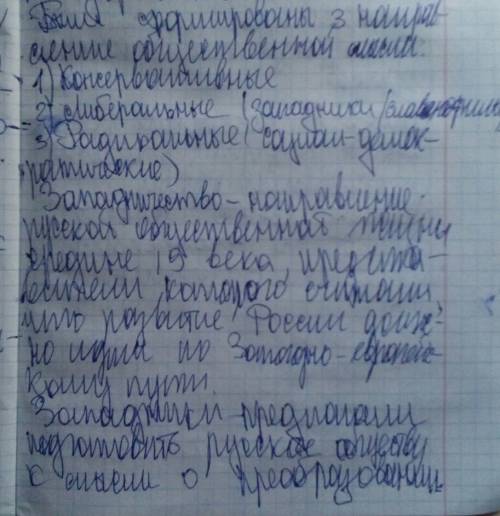 Были сформированы 3 направ-
ление общественной мысли:
1) Консервативные
2) Либеральные (западники/славянофилы
3) Радикальные (социал-демок-
ратические)
Западничество - направление
русской общественной жизни
середине 19 века, предста-
вители которого считали,
что развитие России долж-
но идти по Западно-европейс-
кому пути.
Западники предлагали
подготовить русское общество
к мысли о преобразовании